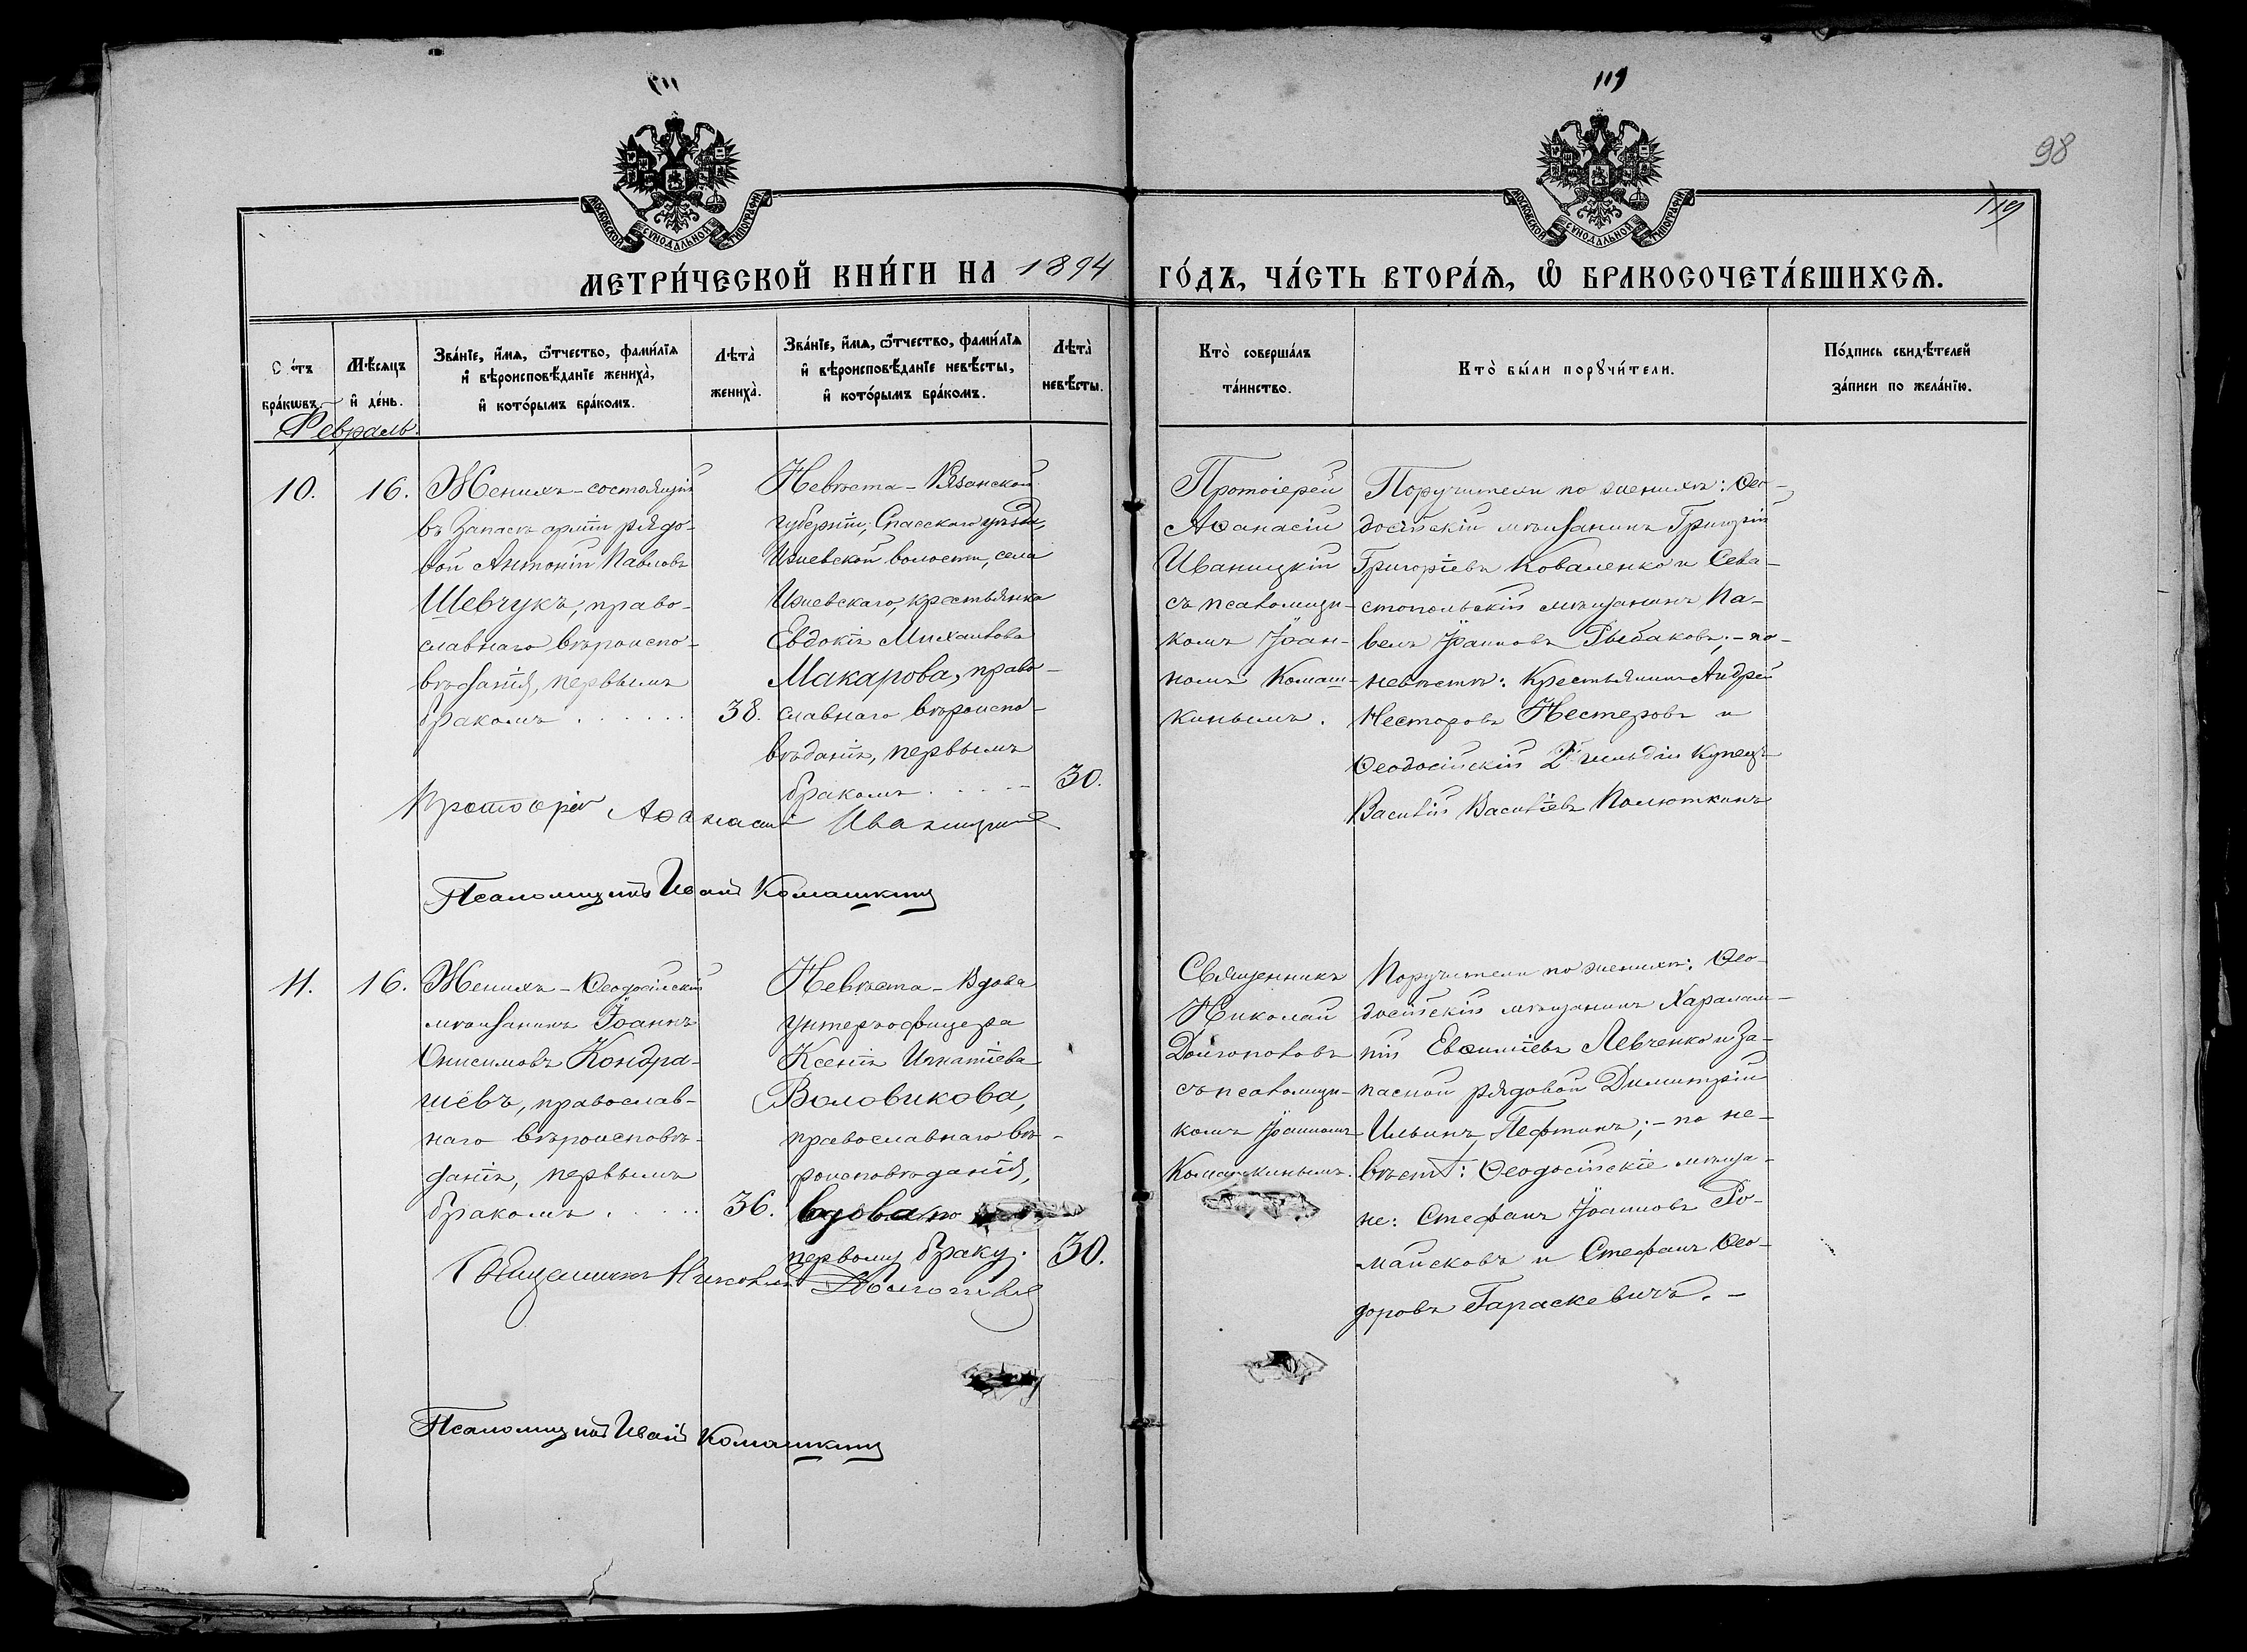 119
98
119
МОСКОВСКОЙ СѴНОДАЛЬНОЙ ТИПОГРАФІИ
МОСКОВСКОЙ СѴНОДАЛЬНОЙ ТИПОГРАФІИ
МЕТРИ́ЧЕСКОЙ КНИ́ГИ НА 1894 ГО́ДЪ, ЧА́СТЬ ВТОРА́Ѧ, Ѽ БРАКОСОЧЕТА́ВШИХСѦ.
Счетъ бра́кѡвъ.
Мѣ́сяцъ и҆ де́нь.
Зва́нїе, и҆́мѧ, ѻ҆́тчество, фами́лїѧ
и҆ вѣроисповѣ́данїе жениха̀,
и҆ кото́рымъ бра́комъ.
Лѣта̀
жениха̀.
Зва́нїе, и҆́мѧ, ѻ҆́тчество, фами́лїѧ
и҆ вѣроисповѣ́данїе невѣ́сты,
и҆ кото́рымъ бра́комъ.
Лѣта̀
невѣ́сты.
Кто̀ соверша́лъ
та́инство.
Кто̀ бы́ли порꙋчи́тели.
По́дпись свидѣ́телей
за́писи по жела́нїю.
Февраль.
10.
16.
Женихъ - состоящій
въ запасѣ арміи рядо-
вой Антоній Павловъ
Шевчукъ, право-
славнаго вѣроиспо-
вѣданія, первымъ
бракомъ . . . . . .
38.
Невѣста - Рязанской
губерніи, Спасскаго уѣзда,
Ижевской волости, села
Ижевскаго, крестьянка
Евдокія Михаилова
Макарова, право-
славнаго вѣроиспо-
вѣданія, первымъ
бракомъ . . . . -
30.
Протоіерей
Аѳанасій
Иваницкій
съ псаломщи-
комъ Іоан-
номъ Комаш-
кинымъ.
Поручители по женихѣ: Ѳео-
досійскій мѣщанинъ Григорій
Григоріевъ Коваленко и Сева-
стопольскій мѣщанинъ Па-
велъ Іоанновъ Рыбаковъ; - по
невѣстѣ: Крестьянинъ Андрей
Несторовъ Нестеровъ и
Ѳеодосійскій 2й гильдіи купецъ
Василій Васильевъ Полюткинъ
Протоіерей Аѳанасій Иваницкій
Псаломщикъ Иванъ Комашкинъ
11.
16.
Женихъ - Ѳеодосійскій
мѣщанинъ Іоаннъ
Онисимовъ Кондра-
шёвъ, православ-
наго вѣроисповѣ-
данія, первымъ
бракомъ . . . . .
36.
Невѣста - Вдова
унтеръ-офицера
Ксенія Игнатіева
Воловикова,
православнаго вѣ-
роисповѣданія,
вдова по
первому браку.
30.
Священникъ
Николай
Долгополовъ
съ псаломщи-
комъ Іоанномъ
Комашкинымъ.
Поручители по женихѣ: Ѳео-
досійскій мѣщанинъ Харалам-
пій Евѳиміевъ Левченко и за-
пасной рядовой Димитрій
Ильинъ Пефтинъ; - по не-
вѣстѣ: Ѳеодосійскіе мѣща-
не: Стефанъ Іоанновъ Ро-
майсковъ и Стефанъ Ѳео-
доровъ Гараскевичъ. -
Священникъ Николай Долгополовъ
Псаломщикъ Иванъ Комашкинъ